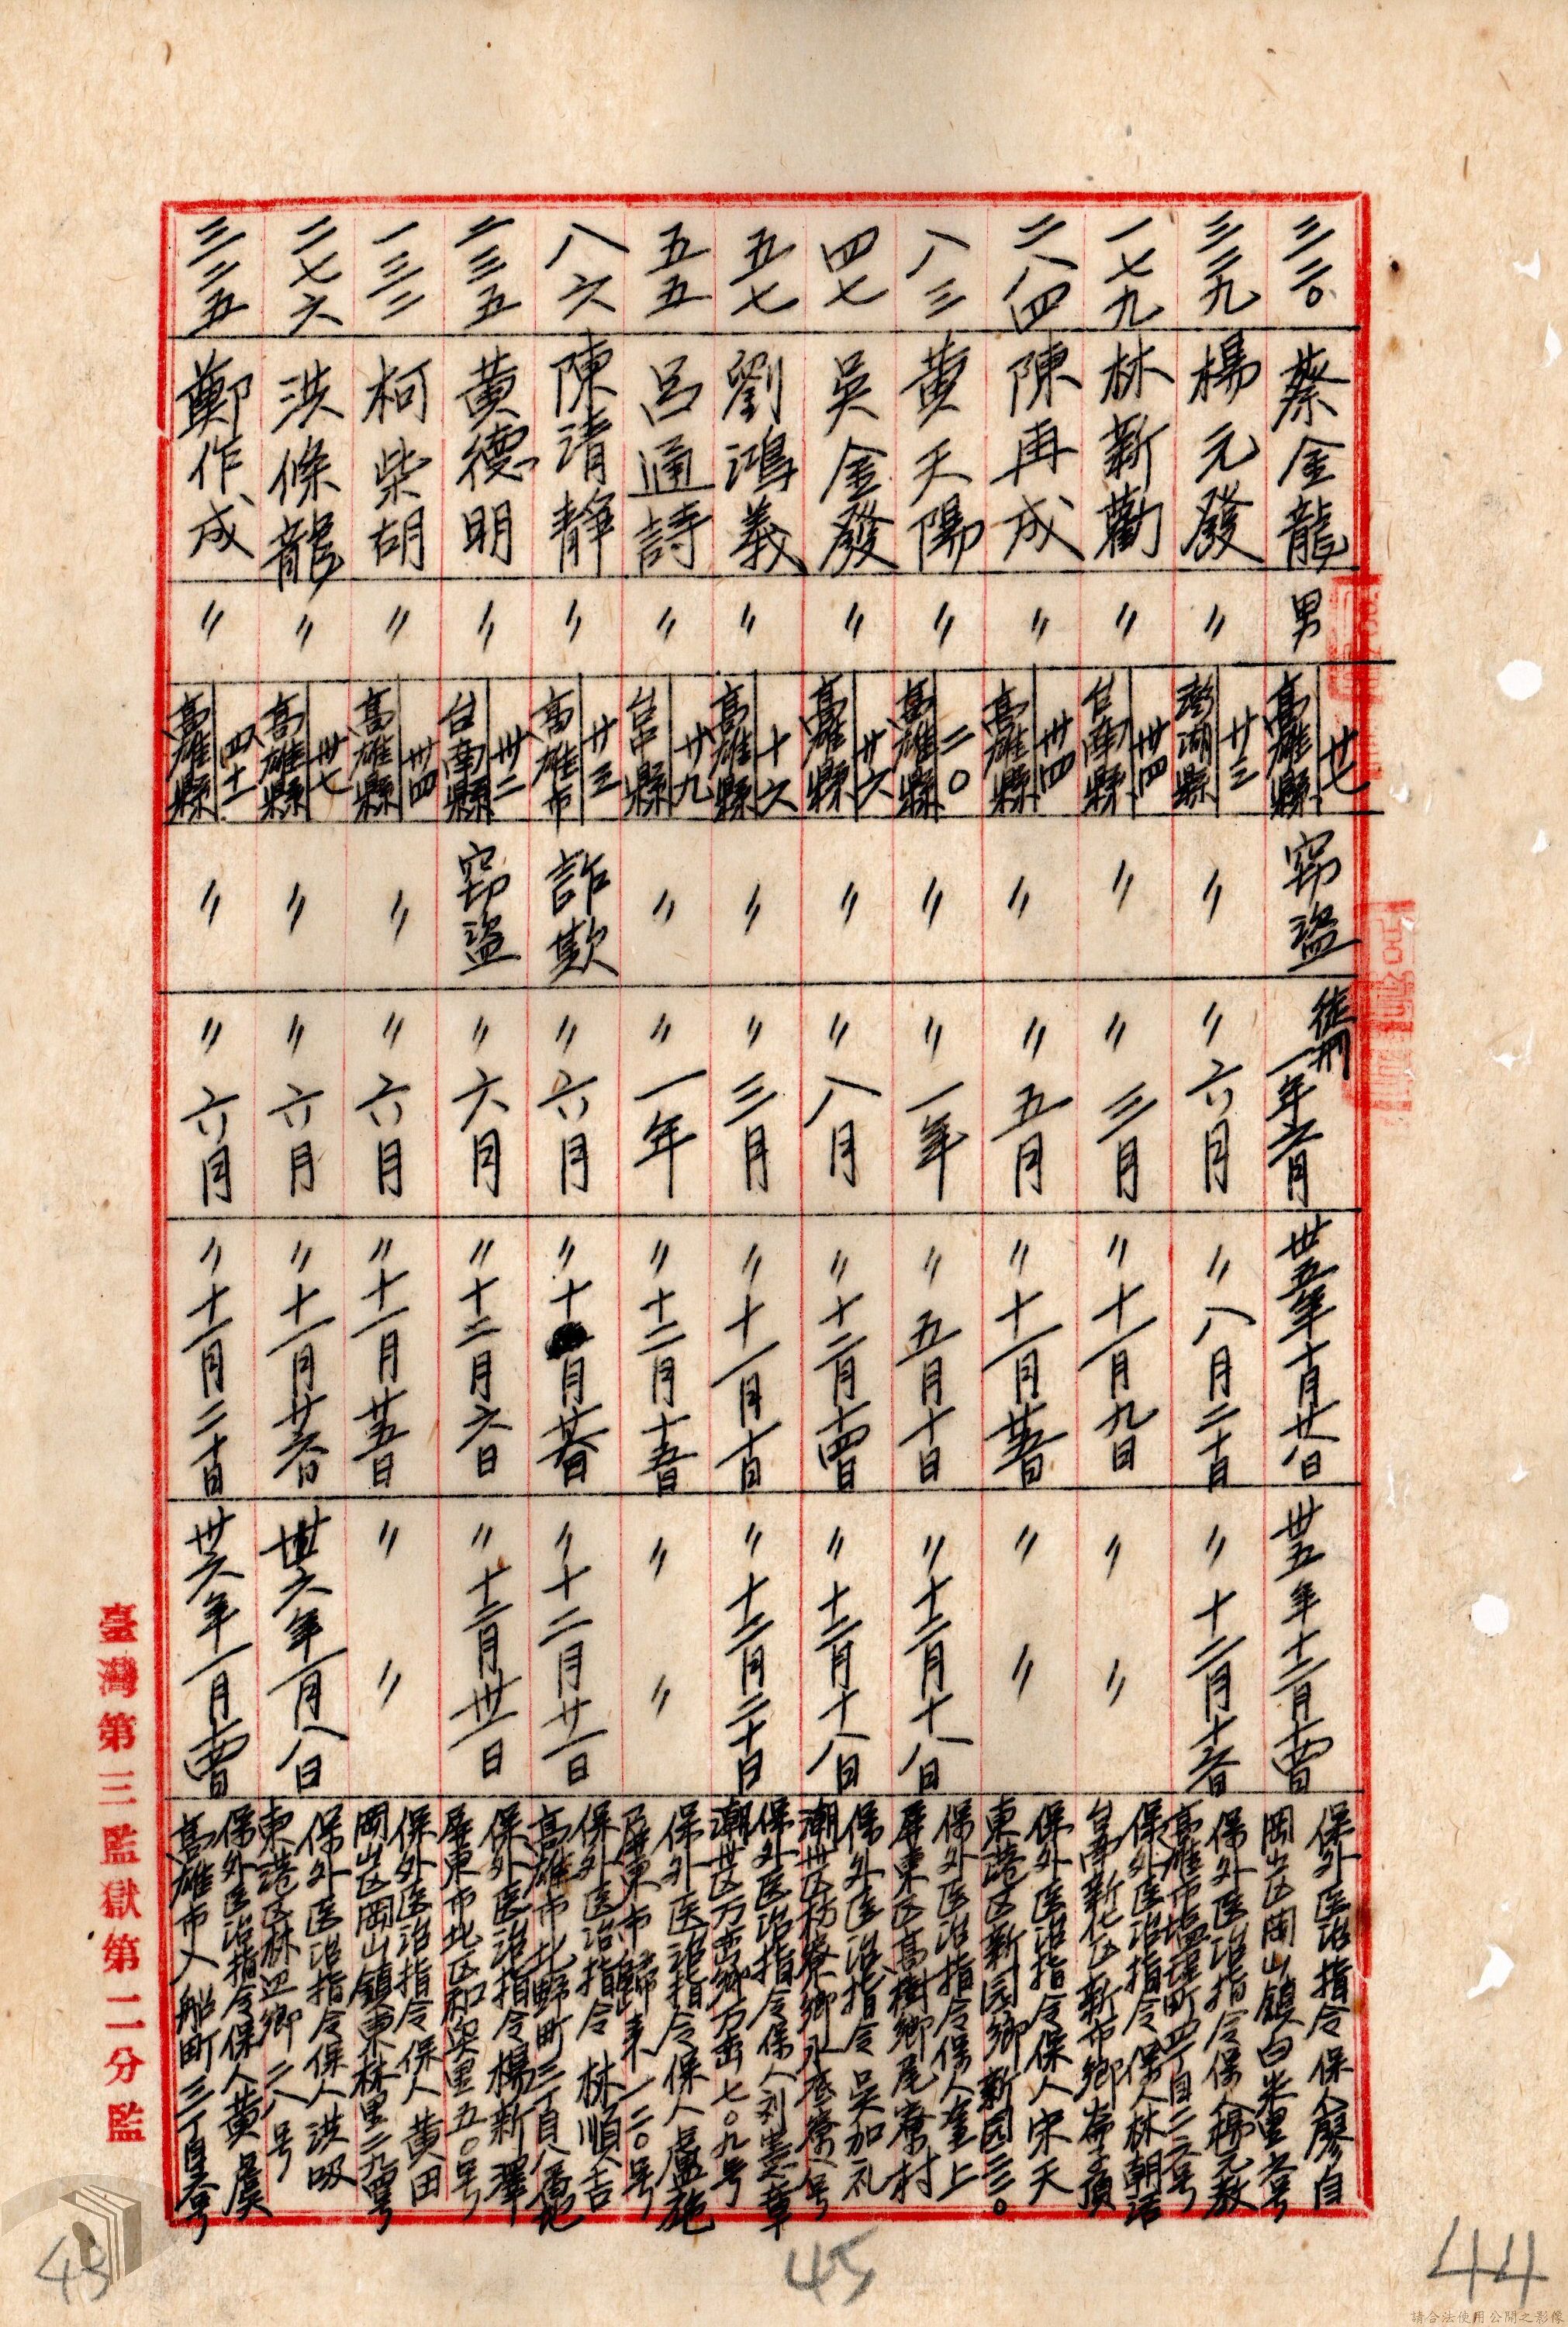 三二〇 蔡金龍 男 高雄縣 廿七 窃盜 徒刑一年六月 卅五年十月廿八日 卅五年十二月十四日 保外医治指令 保人廖自 岡山区岡山鎮白米里六号
三二九 楊元發 〃 澎湖縣 廿三 〃 〃六月 〃八月二十日 〃十二月十六日 保外医治指令保人楊元教 高雄市塩埕町四丁目二六号
一七九 林新勸 〃 台南縣 廿四 〃 〃三月 〃十一月九日 〃 〃 保外医治指令保人林朝活 台南新化区新市鄉崙子頂
二八四 陳再成 〃 高雄縣 廿四 〃 〃五月 〃十一月廿五日 〃 〃 保外医治指令保人宋天 東港区新园鄉新园三三〇
八三 黄天陽 〃 高雄縣 二〇 〃 〃一年 〃五月十日 〃十二月十八日 保外医治指令保人奎上 屏東区高樹鄉尾寮村
四七 吳金發 〃 高雄縣 廿六 〃 〃八月 〃十二月十四日 〃十二月十八日 保外医治指令 吳加礼 潮州区枋寮鄉水底寮八号
五七 劉鴻義 〃 高雄縣 十六 〃 〃三月 〃十一月十日 〃十二月二十日 保外医治指令保人刘憲章 潮州区万峦鄉万峦七〇九号
五五 呂通詩 〃 台中縣 廿九 〃 〃一年 〃十二月十五日 〃 〃 保外医治指令保人盧施 屏東市歸來一二〇号
八六 陳清靜 〃 高雄市 廿三 詐欺 〃六月 〃十月廿六日 〃十二月廿一日 保外医治指令 林順吉 高雄市北野町三丁目八番地
二三五 黄德明 〃 台南縣 卅二 窃盜 〃六月 〃十二月六日 〃十二月卅一日 保外医治指令楊新澤 屏東市北区和興里五〇号
一三二 柯柴胡 〃 高雄縣 卅四 〃 〃六月 〃十一月廿五日 〃 〃 保外医治指令保人黄田 岡山区岡山鎮東林里二九四号
二七六 洪條龍 〃 高雄縣 卅七 〃 〃六月 〃十一月廿六日 卅六年一月八日 保外医治指令保人洪吸 東港区林边鄉二八号
三二五 鄭作成 〃 高雄縣 四十一 〃 〃六月 〃十一月二十日 卅六年一月十四日 保外医治指令保人黄虞 高雄市入船町三丁目六号
臺灣第三監獄第二分監
43
45
44
請合法使用公開之影像